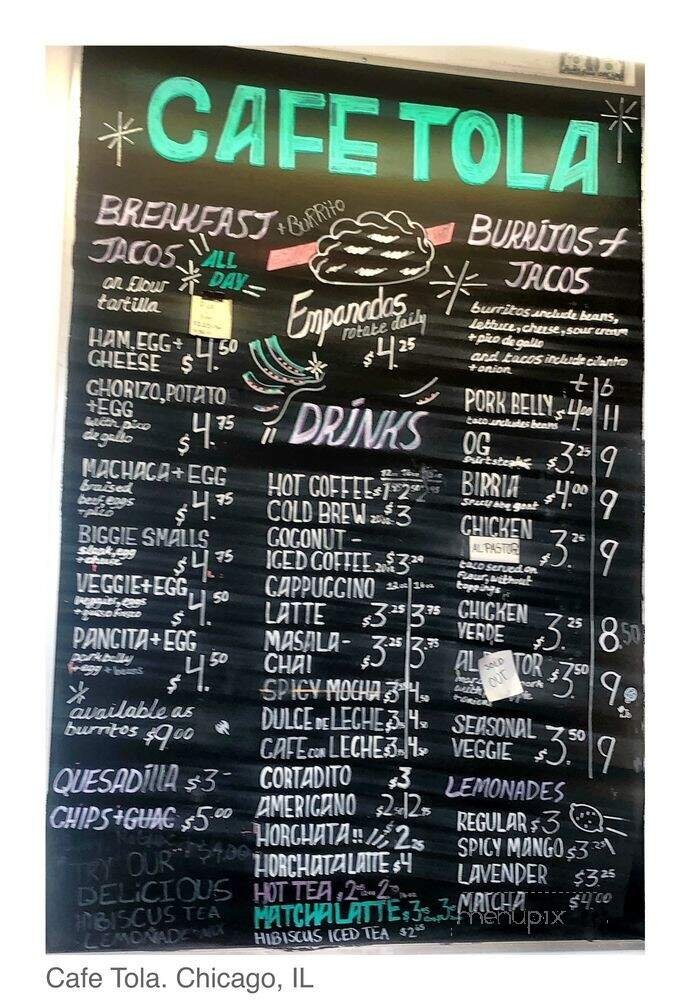 CAFE TOLA
BREAKFAST
+ BURRITO
TACOS
ALL
DAY
on flour
tortilla
HAM, EGG +
CHEESE $4.50
CHORIZO, POTATO
+ EGG
with pico
de gallo $4.75
MACHACA + EGG
braised
beef, eggs
+ pico $4.75
BIGGIE SMALLS
steak, egg
+ cheese $4.75
VEGGIE + EGG
veggies, eggs
+ queso fresco $4.50
PANCITA + EGG
pork belly
+ egg + beans $4.50
available as
burritos $9.00
QUESADILLA $3-
CHIPS + GUAC $5.00
TRY OUR $4.00
DELiCiOUS
HIBISCUS TEA
LEMONADE MIX
Empanadas
rotate daily
$4.25
DRINKS
HOT COFFEE
COLD BREW 20oz $3
COCONUT-
ICED COFFEE 20oz $3
CAPPUCCINO 12oz 16oz
LATTE $3.25 3.75
MASALA- $3.25 3.75
CHAI
SPICY MOCHA
DULCE DE LECHE
CAFE CON LECHE
CORTADITO $3
AMERICANO
HORCHATA !!
HORCHATA LATTE $4
HOT TEA
MATCHA LATTE
HIBISCUS ICED TEA
BURRITOS +
TACOS
burritos include beans,
lettuce, cheese, sour cream
+ pico de gallo
and tacos include cilantro
+ onion
t b
PORK BELLY $4.00 11
taco includes beans
OG $3.25 9
skirt steak
BIRRIA $4.00 9
CHICKEN $3.25 9
AL PASTOR
taco served on
flour, without
toppings
CHICKEN
VERDE $3.25 8.50
AL TOR $3.50 9
SOLD
OUT
SEASONAL
VEGGIE $3.50 9
LEMONADES
REGULAR $3
SPICY MANGO
LAVENDER $3.25
MATCHA $4.00
menupix
Cafe Tola. Chicago, IL